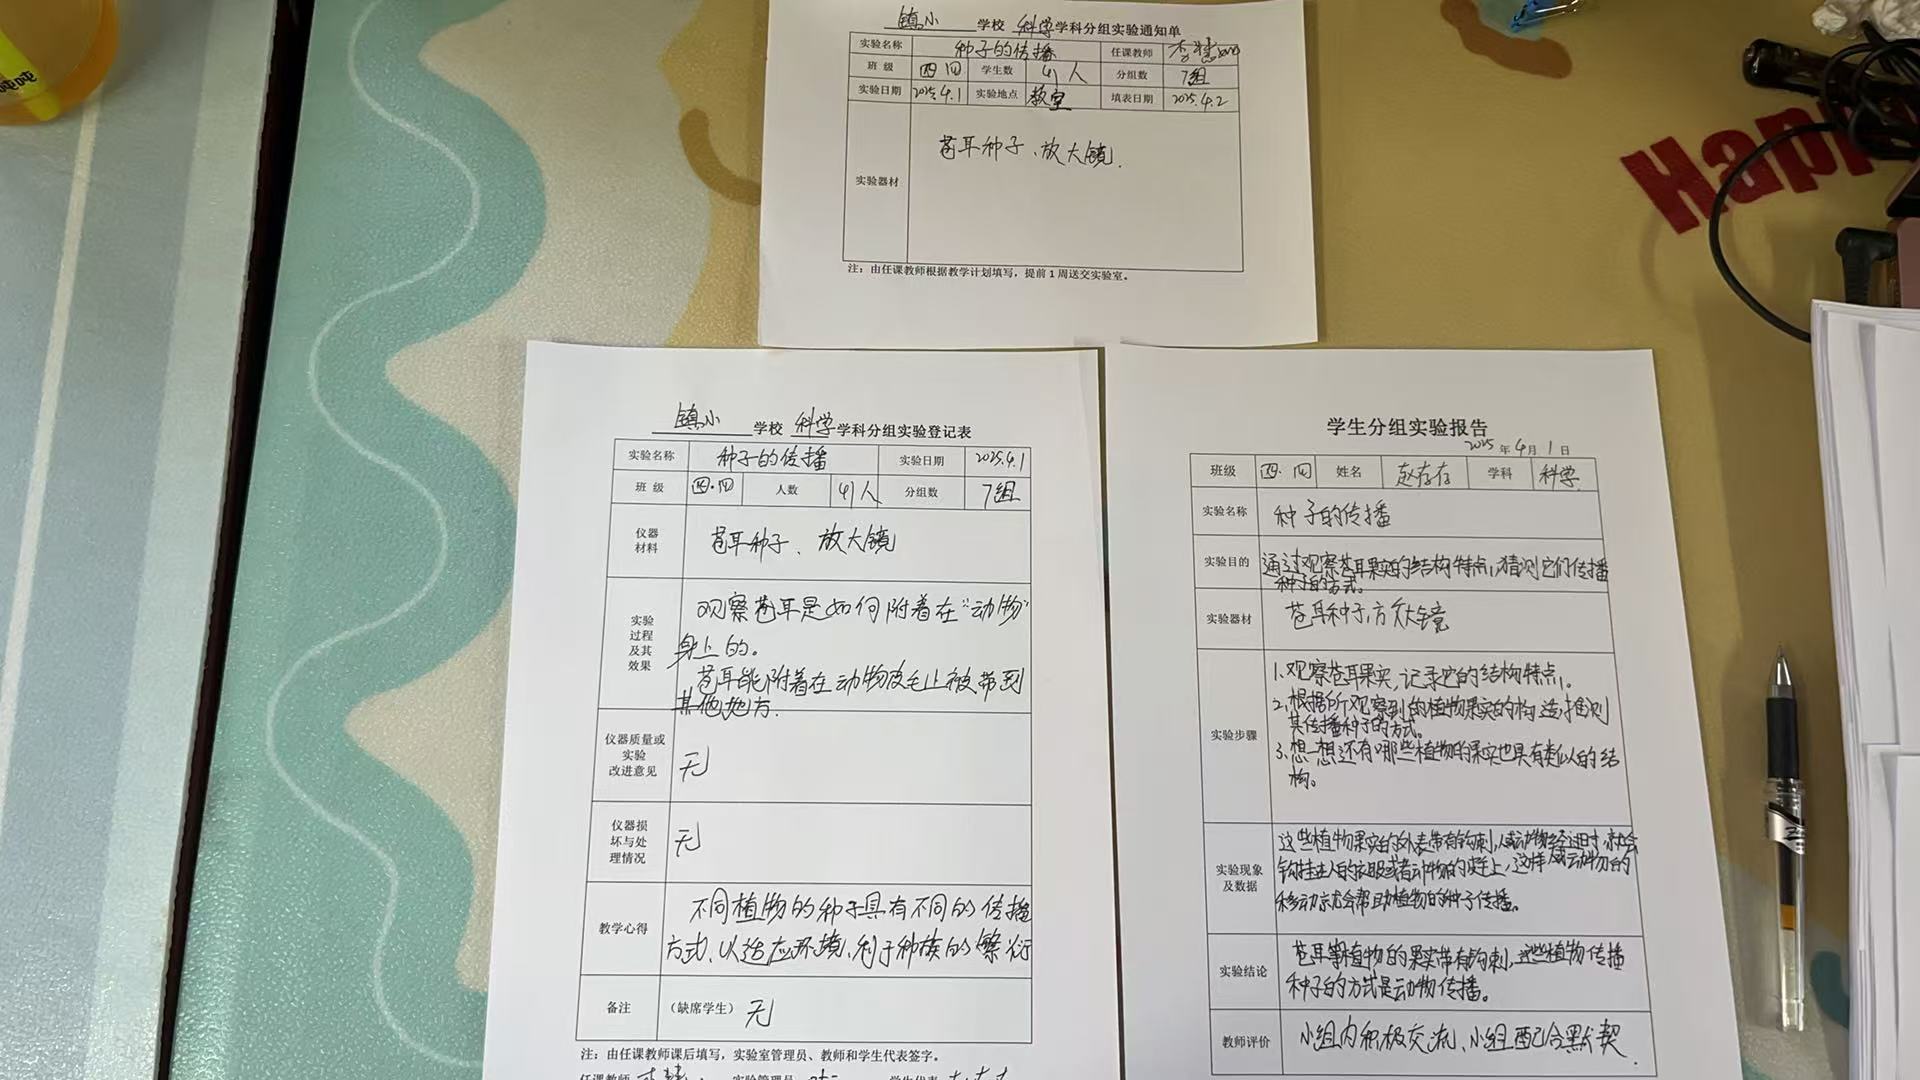 镇小 学校 科学学科分组实验通知单
实验名称 种子的传播 任课教师 李慧
班 级 四.四 学生数 41人 分组数 7组
实验日期 2025.4.1 实验地点 教室 填表日期 2025.4.2
实验器材 苍耳种子、放大镜.
注：由任课教师根据教学计划填写，提前1周送交实验室。
镇小 学校 科学学科分组实验登记表
实验名称 种子的传播 实验日期 2025.4.1
班 级 四.四 人数 41人 分组数 7组
仪器
材料
苍耳种子、放大镜
实验
过程
及其
效果
观察苍耳是如何附着在“动物”
身上的。
苍耳能附着在动物皮毛上被带到
其他地方.
仪器质量或
实验
改进意见
无
仪器损
坏与处
理情况
无
教学心得
不同植物的种子具有不同的传播
方式、以适应环境、利于种族的繁衍
备注 （缺席学生）无
注：由任课教师课后填写，实验室管理员、教师和学生代表签字。
任课教师 实验管理员 学生代表
学生分组实验报告
2025年4月1日
班级 四.四 姓名 赵存存 学科 科学
实验名称 种子的传播
实验目的
通过观察苍耳果实的结构特点，猜测它们传播
种子的方式。
实验器材 苍耳种子，放大镜
实验步骤
1.观察苍耳果实，记录它的结构特点。
2.根据所观察到的植物果实的构造，推测
其传播种子的方式。
3.想一想还有哪些植物的果实也具有类似的结
构。
实验现象
及数据
这些植物果实的外表带有钩刺，人或动物经过时，就会
钩挂在人的衣服或者动物的皮毛上，这样人或动物的
移动就会帮助植物的种子传播。
实验结论
苍耳等植物的果实带有钩刺，这些植物传播
种子的方式是动物传播。
教师评价 小组内积极交流、小组配合默契.
Happ